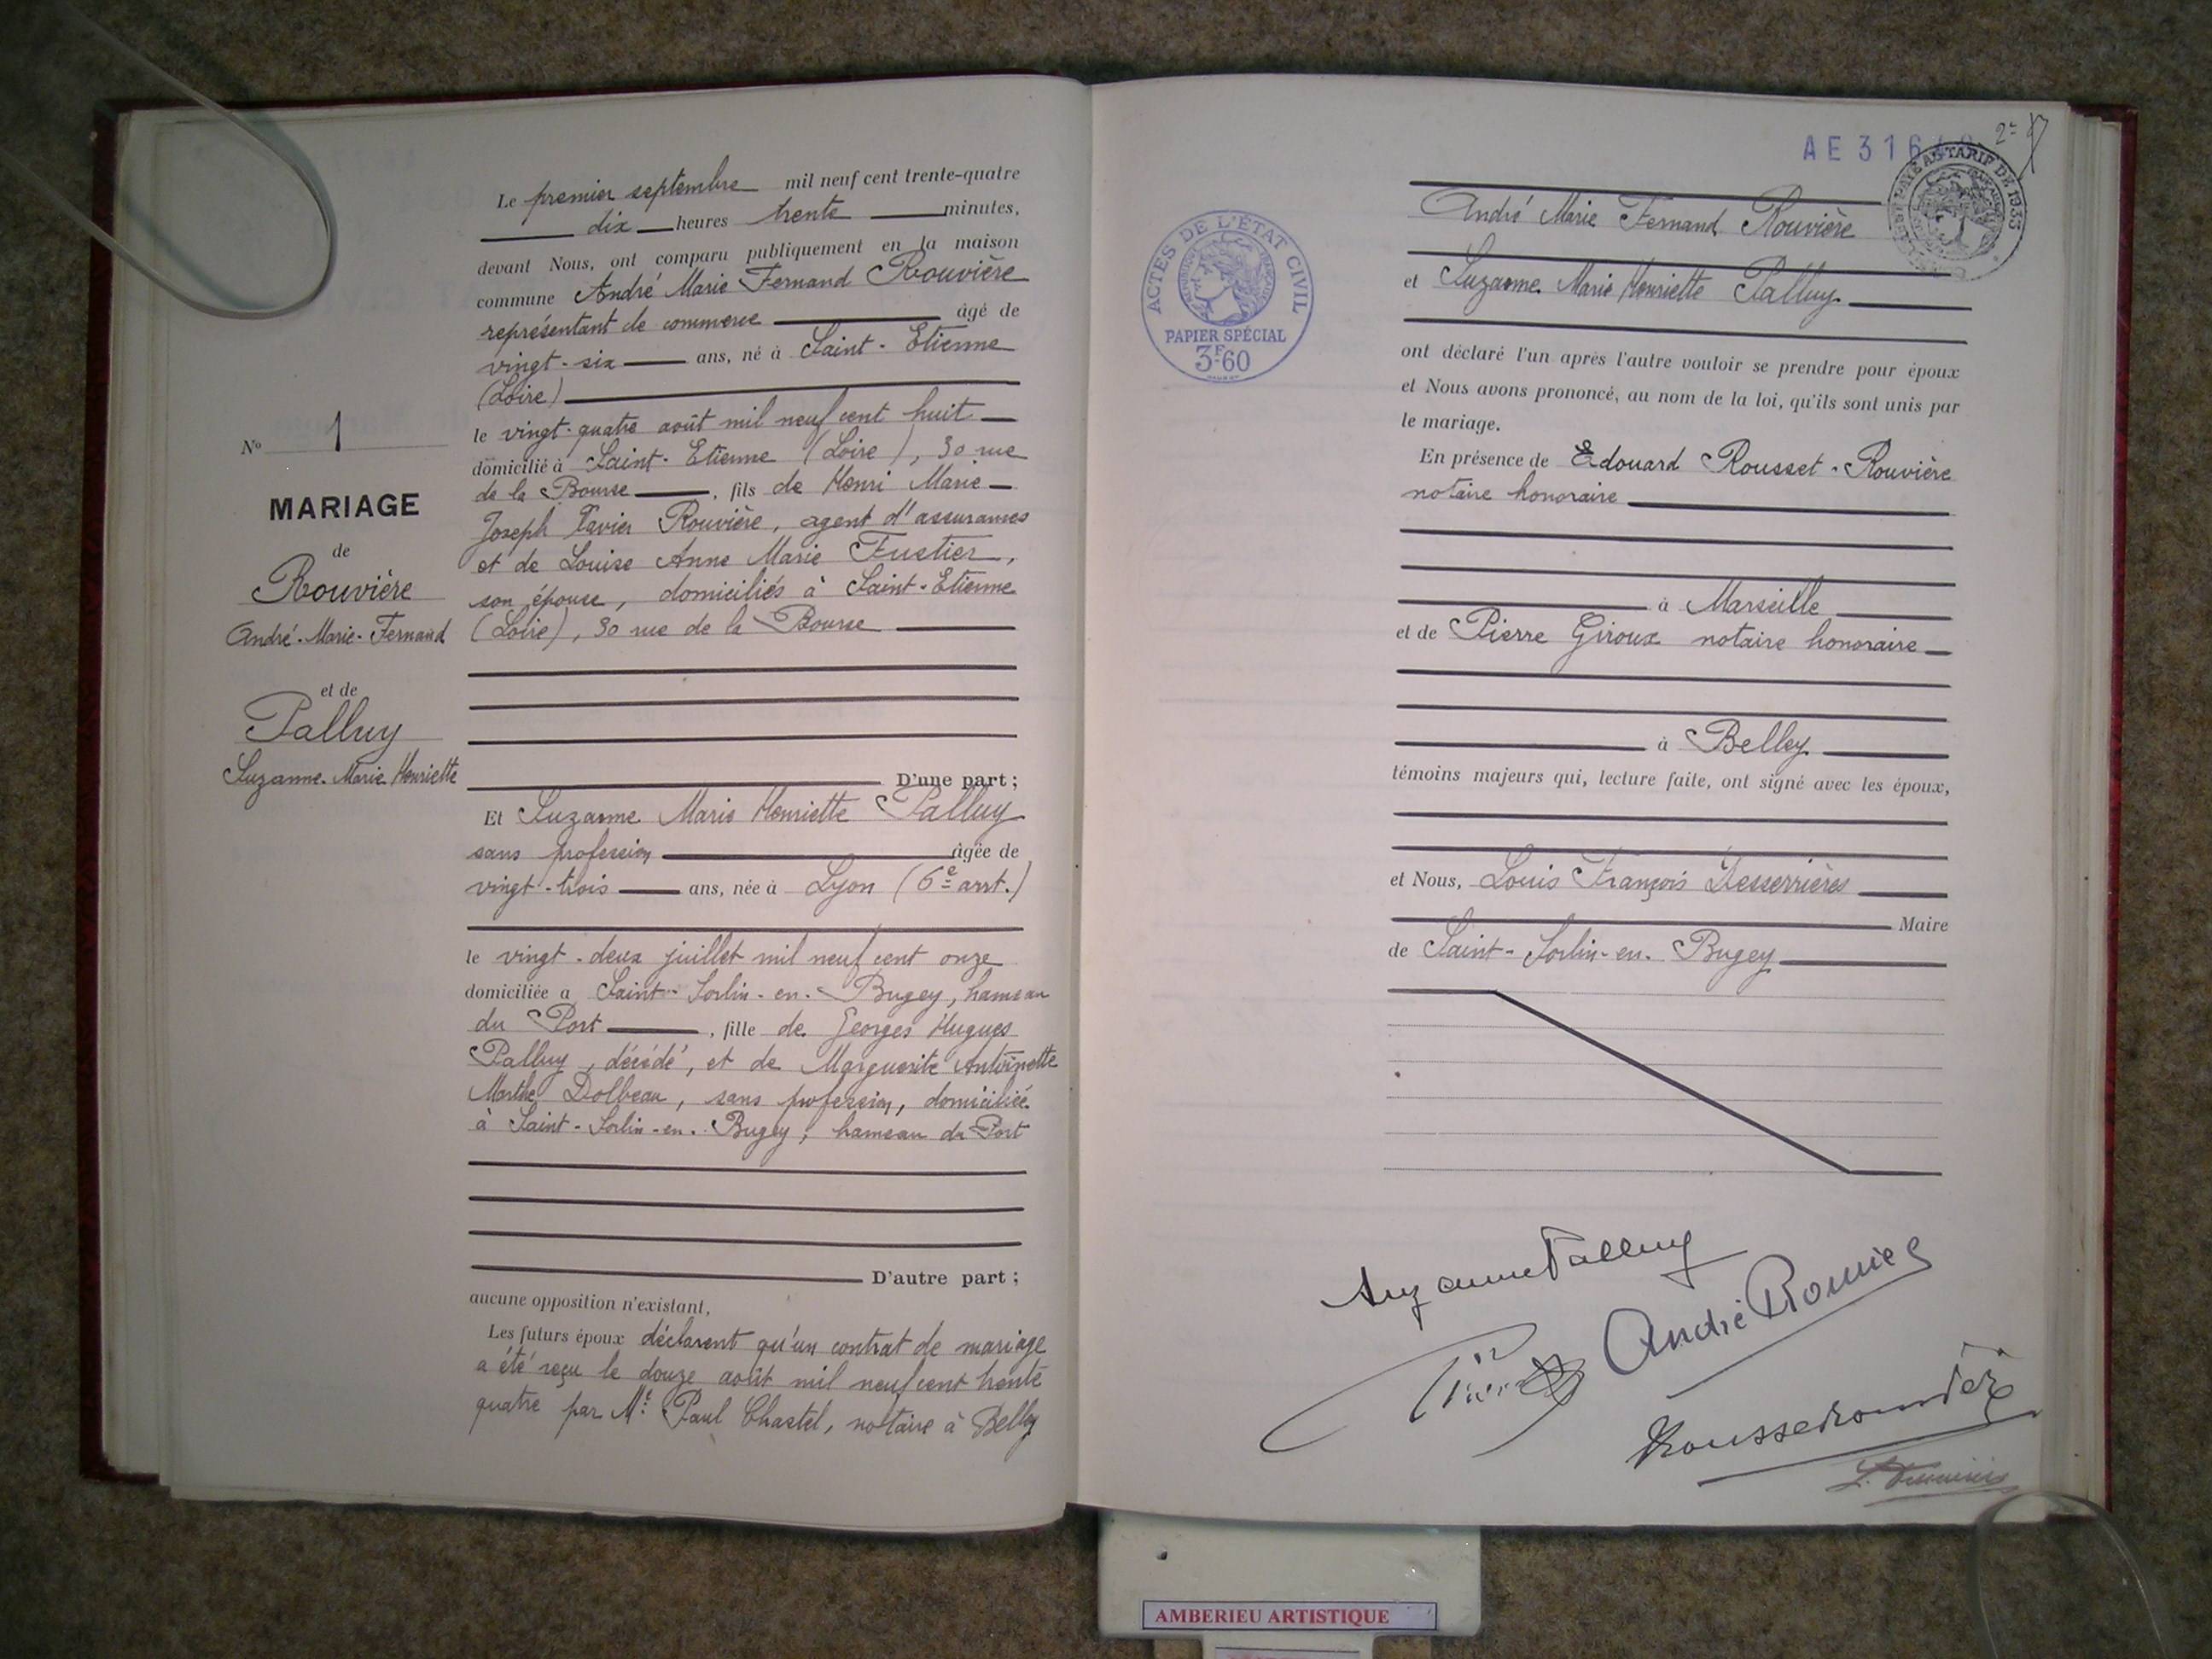 Le premier septembre mil neuf cent trente-quatre
dix heures trente minutes,
devant Nous, ont comparu publiquement en la maison
commune André Marie Fernand Rouvière
représentant de commerce âgé de
vingt-six ans, né à Saint-Etienne
(Loire)
le vingt-quatre août mil neuf cent huit
domicilié à Saint-Etienne (Loire), 30 rue
de la Bourse, fils de Henri Marie
Joseph Xavier Rouvière, agent d'assurances
et de Louise Anne Marie Fustier,
son épouse, domiciliés à Saint-Etienne
(Loire), 30 rue de la Bourse
D'une part;
Et Suzanne Marie Henriette Palluy
sans profession âgée de
vingt-trois ans, née à Lyon (6e arrt.)
le vingt-deux juillet mil neuf cent onze
domiciliée a Saint-Sorlin-en-Bugey, hameau
du Port, fille de Georges Hugues
Palluy, décédé, et de Marguerite Antoinette
Marthe Dolbeau, sans profession, domiciliée
à Saint-Sorlin-en-Bugey, hameau du Port
D'autre part;
aucune opposition n'existant,
Les futurs époux déclarent qu'un contrat de mariage
a été reçu le douze août mil neuf cent trente
quatre par Me Paul Chastel, notaire à Belley
No 1
MARIAGE
de
Rouvière
André-Marie-Fernand
et de
Palluy
Suzanne-Marie Henriette
AE 316
ACTES DE L'ÉTAT CIVIL
PAPIER SPÉCIAL
3F60
TARIF DE 1933
André Marie Fernand Rouvière
et Suzanne Marie Henriette Palluy
ont déclaré l'un après l'autre vouloir se prendre pour époux
et Nous avons prononcé, au nom de la loi, qu'ils sont unis par
le mariage.
En présence de Edouard Rousset-Rouvière
notaire honoraire
à Marseille
et de Pierre Giroux notaire honoraire
à Belley
témoins majeurs qui, lecture faite, ont signé avec les époux,
et Nous, Louis François Desserrières
Maire
de Saint-Sorlin-en-Bugey
Suzanne Palluy
André Rouvière
AMBERIEU ARTISTIQUE